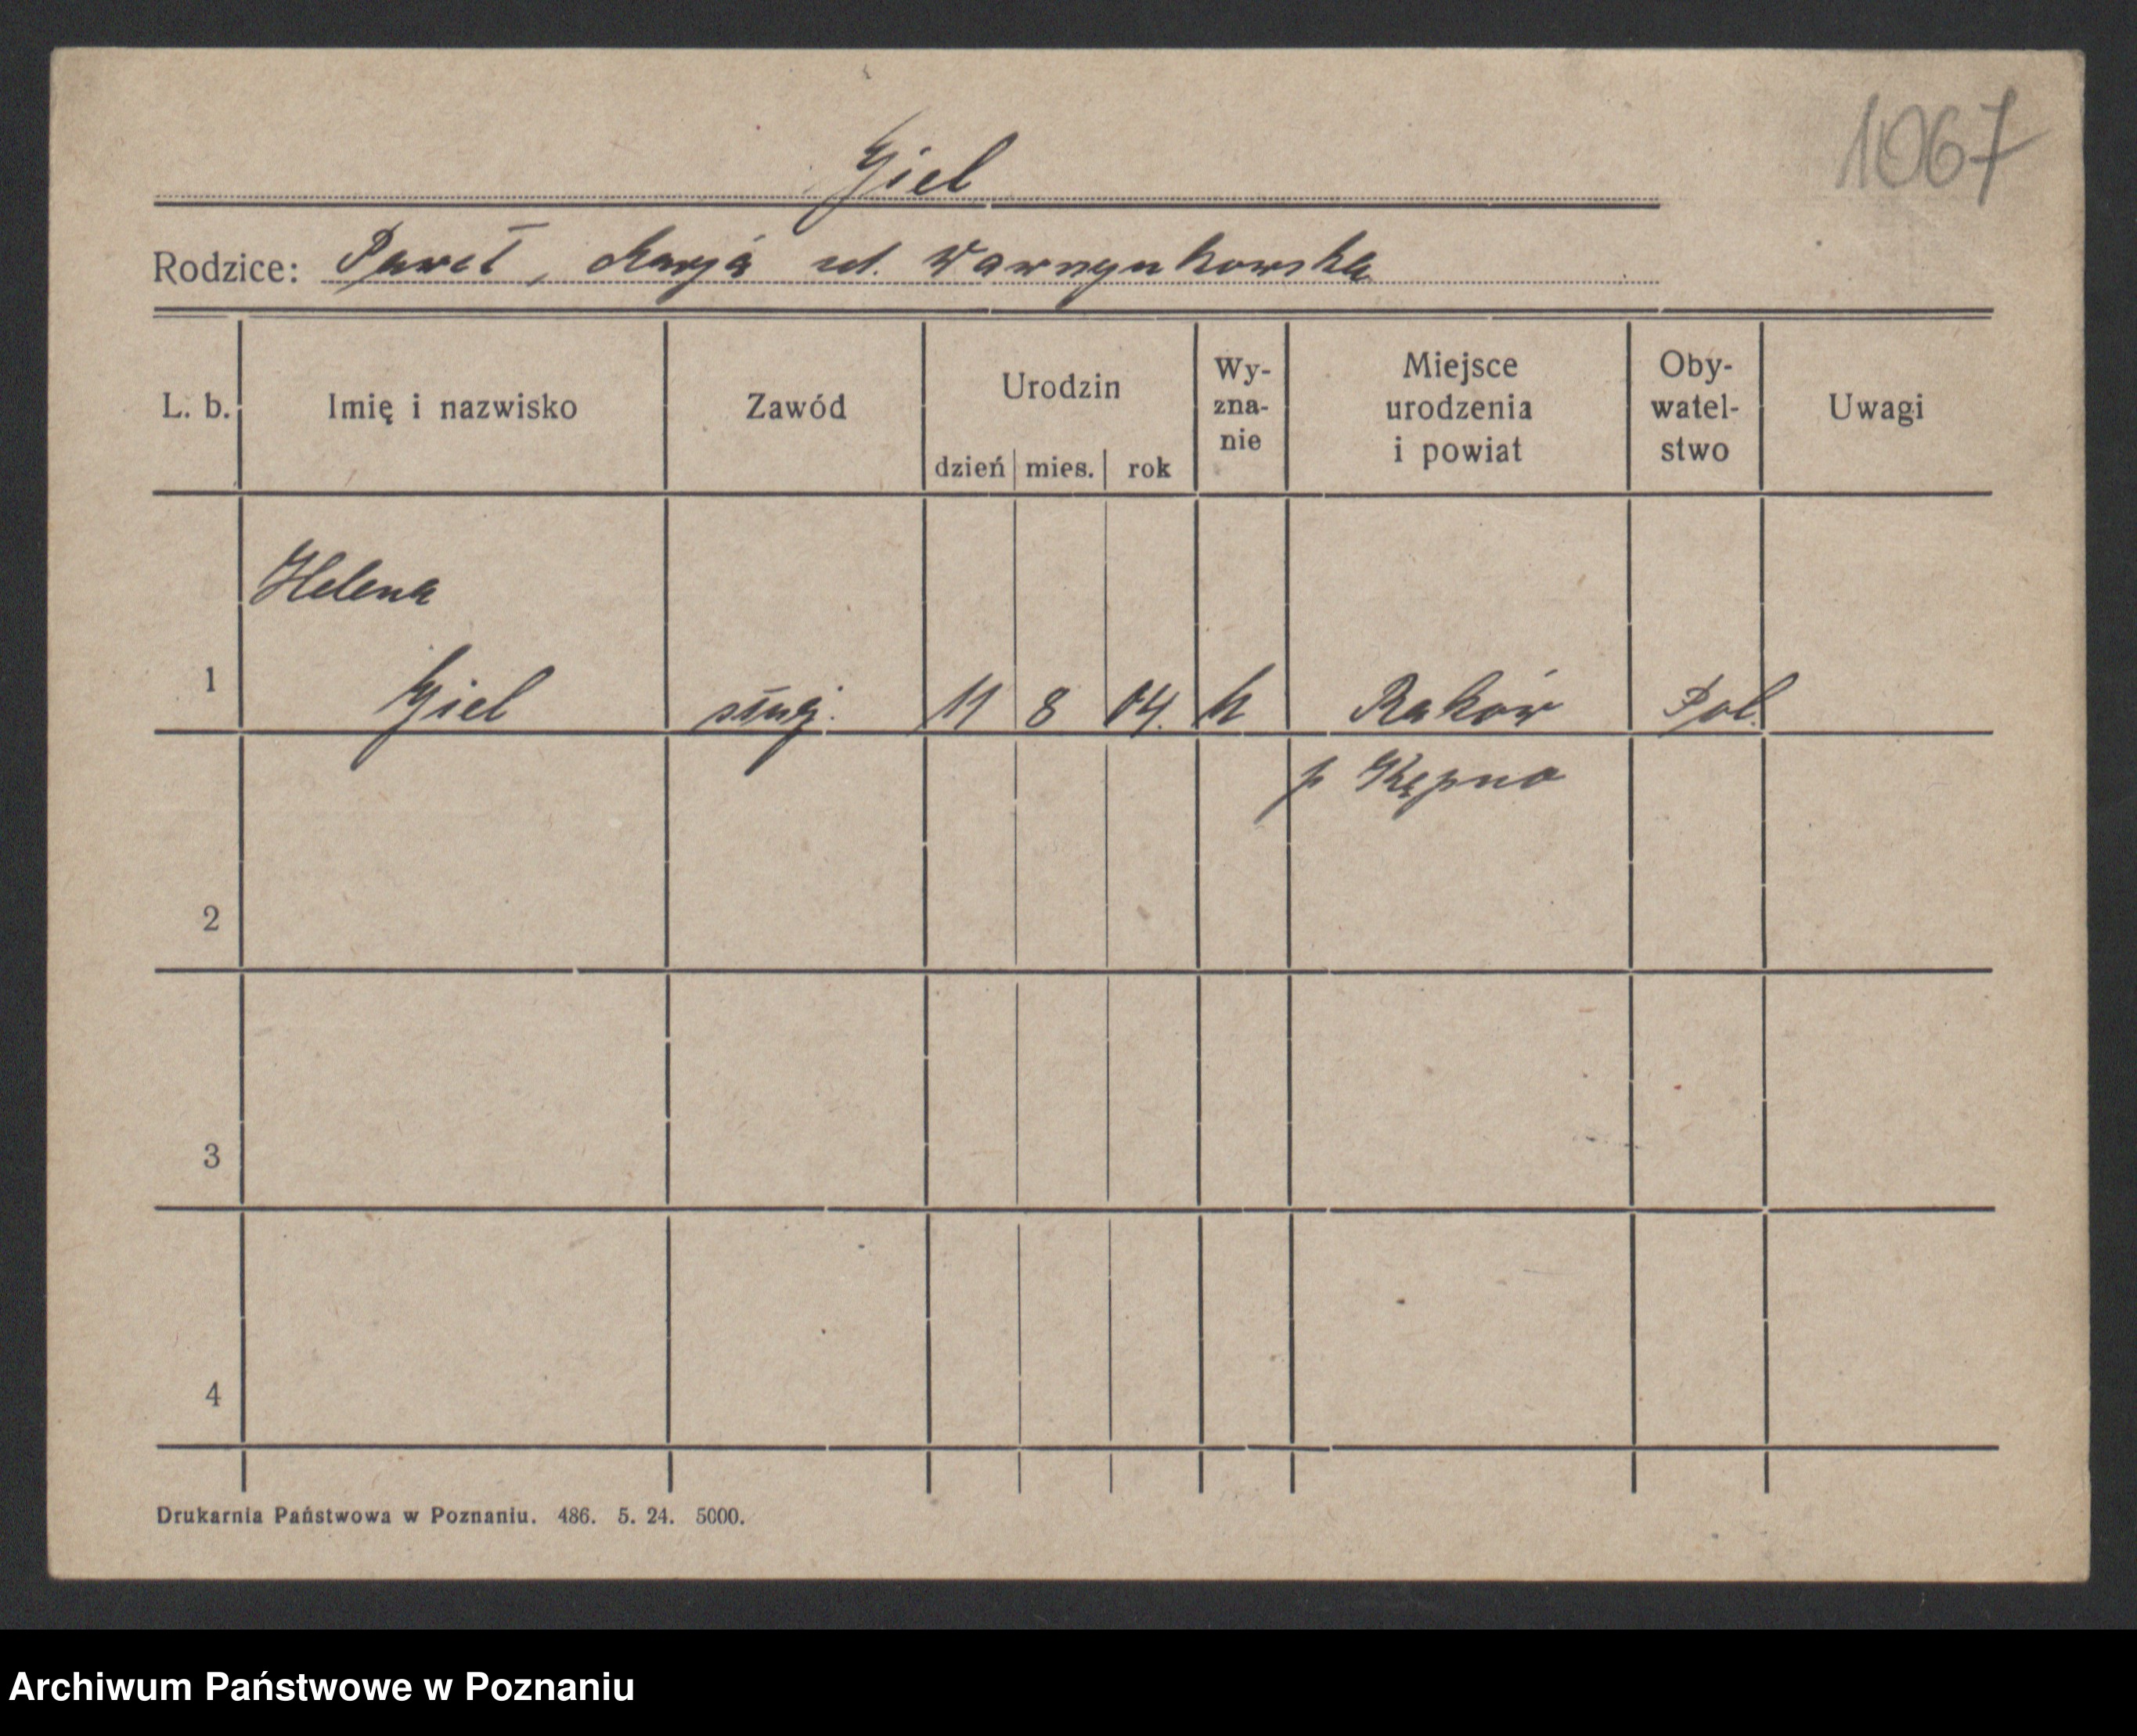 1067
Giel
Rodzice: Paweł, Marja ud. Wawrzynkowska
L. b. Imię i nazwisko Zawód Urodzin dzień mies. rok Wy-zna-nie Miejsce urodzenia i powiat Oby-watel-stwo Uwagi
Helena
1 Giel służ. 11 8 04. k Raków Pol.
p Kępno
2
3
4
Drukarnia Państwowa w Poznaniu. 486. 5. 24. 5000.
Archiwum Państwowe w Poznaniu